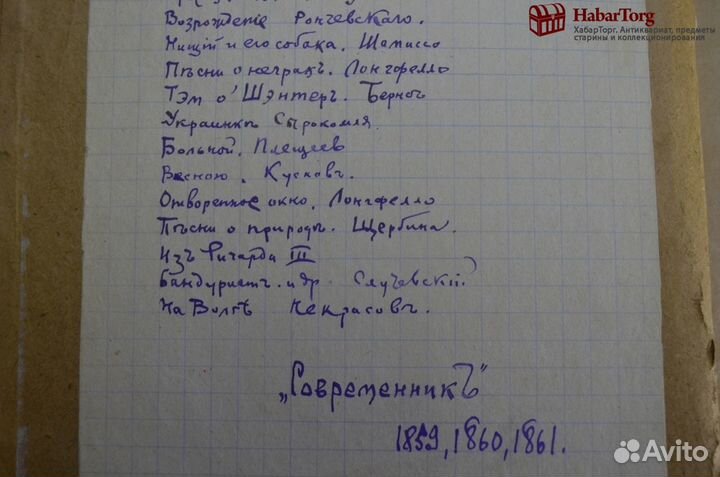 HabarTorg
ХабарТорг. Антиквариат, предметы
старины и коллекционирования
Возрождение Рончевскаго.
Нищій и его собака. Шамиссо
Пѣсни о неграхъ. Лонгфелло
Тэм о' Шэнтеръ. Бернсъ
Украинкѣ Сырокомля.
Больной. Плещеев
Весною. Кусковъ.
Отворенное окно. Лонгфелло
Пѣсни о природѣ. Щербина.
Изъ Ричарда III
Бандуристъ. и др. Случевскій
На Волгѣ Некрасовъ.
„Современникъ"
1859, 1860, 1861.
Avito